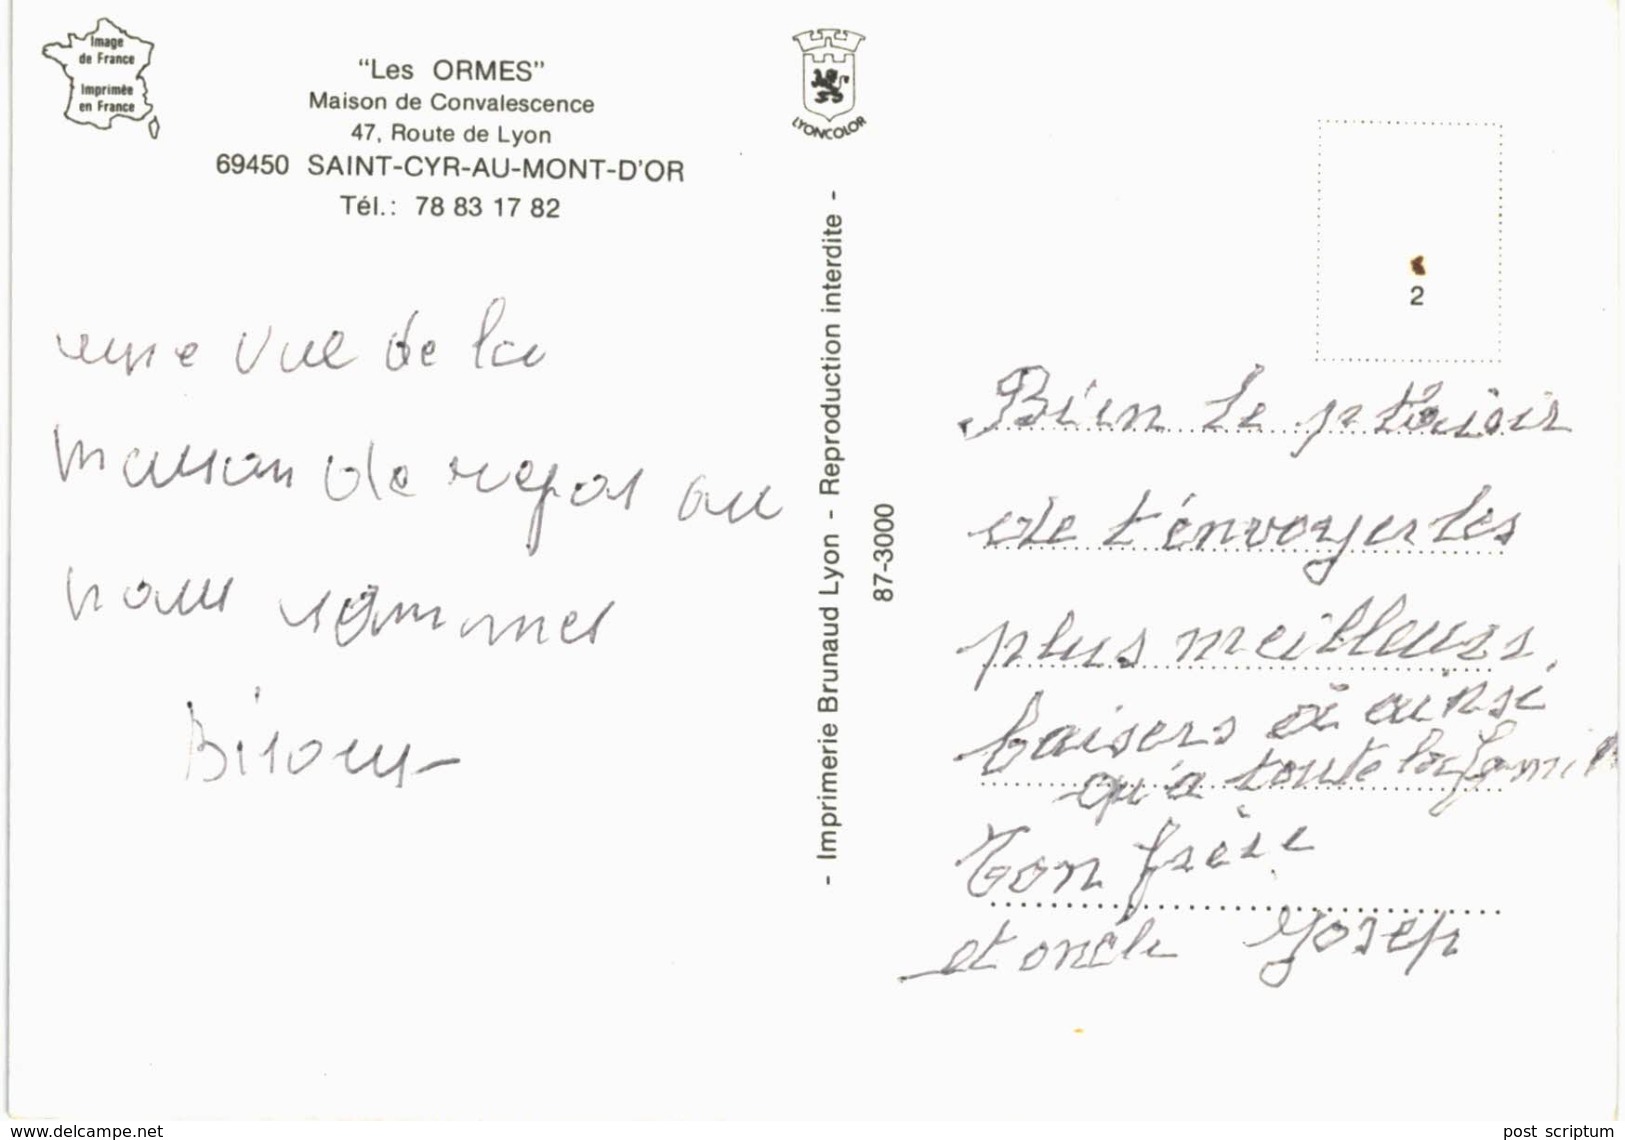 Image
de France
Imprimée
en France
"Les ORMES"
Maison de Convalescence
47, Route de Lyon
69450 SAINT-CYR-AU-MONT-D'OR
Tél.: 78 83 17 82
LYONCOLOR
une vue de la
maison de repos ou
nous sommes
Bisous
- Imprimerie Brunaud Lyon - Reproduction interdite -
87-3000
2
Bien le plaisir
de t'énvoyer les
plus meilleurs
baisers à ainsi
qu'a toute la famille
Ton frère
et oncle Josep
www.delcampe.net
post scriptum